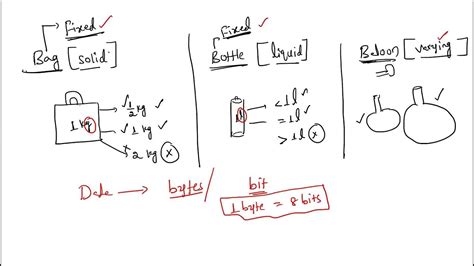 Fixed ✓
Bag [solid]
1 kg
✓ 1/2 kg ✓
✓ 1 kg ✓
2 kg ⓧ
Fixed ✓
Bottle [liquid]
1l
< 1l ✓
= 1l ✓
> 1l ⓧ
Baloon [varying] ✓
Data → bytes / bit
1 byte = 8 bits